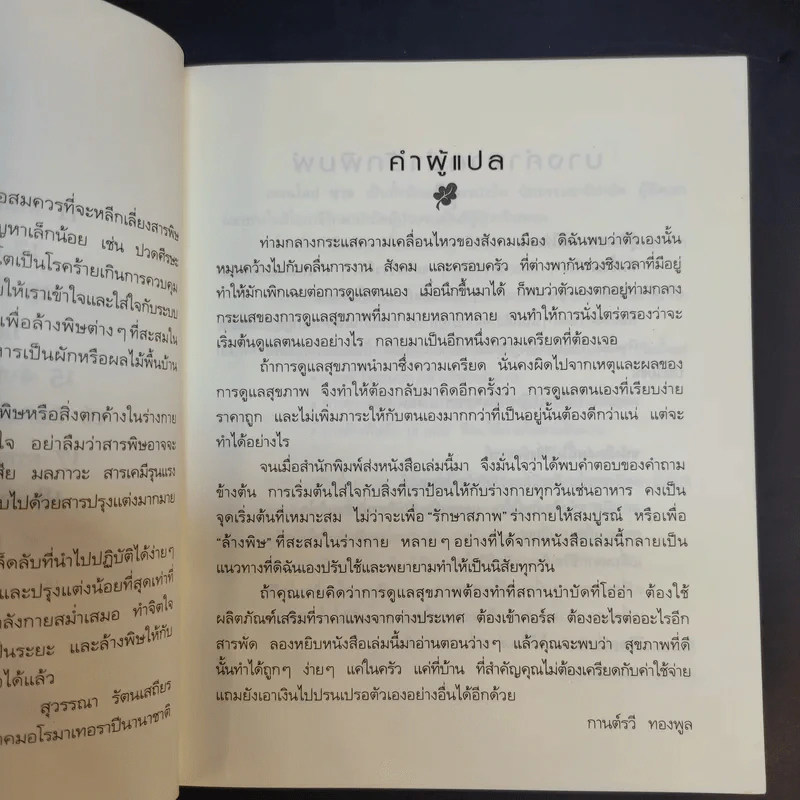 อสมควรที่จะหลีกเลี่ยงสารพิษ
ญหาเล็กน้อย เช่น ปวดศีรษะ
โตเป็นโรคร้ายเกินการควบคุม
ยให้เราเข้าใจและใส่ใจกับระบบ
เพื่อล้างพิษต่างๆ ที่สะสมใน
หารเป็นผักหรือผลไม้พื้นบ้าน
พิษหรือสิ่งตกค้างในร่างกาย
ใจ อย่าลืมว่าสารพิษอาจจะ
สีย มลภาวะ สารเคมีรุนแรง
บไปด้วยสารปรุงแต่งมากมาย
ล็ดลับที่นำไปปฏิบัติได้ง่ายๆ
และปรุงแต่งน้อยที่สุดเท่าที่
ลังกายสม่ำเสมอ ทำจิตใจ
ป็นระยะ และล้างพิษให้กับ
อได้แล้ว
สุวรรณา รัตนเสถียร
คมอโรมาเทอราปีนานาชาติ
คำผู้แปล
ท่ามกลางกระแสความเคลื่อนไหวของสังคมเมือง ดิฉันพบว่าตัวเองนั้น
หมุนคว้างไปกับคลื่นการงาน สังคม และครอบครัว ที่ต่างพากันช่วงชิงเวลาที่มีอยู่
ทำให้มักเพิกเฉยต่อการดูแลตนเอง เมื่อนึกขึ้นมาได้ ก็พบว่าตัวเองตกอยู่ท่ามกลาง
กระแสของการดูแลสุขภาพที่มากมายหลากหลาย จนทำให้การนั่งไตร่ตรองว่าจะ
เริ่มต้นดูแลตนเองอย่างไร กลายมาเป็นอีกหนึ่งความเครียดที่ต้องเจอ
ถ้าการดูแลสุขภาพนำมาซึ่งความเครียด นั่นคงผิดไปจากเหตุและผลของ
การดูแลสุขภาพ จึงทำให้ต้องกลับมาคิดอีกครั้งว่า การดูแลตนเองที่เรียบง่าย
ราคาถูก และไม่เพิ่มภาระให้กับตนเองมากกว่าที่เป็นอยู่นั้นต้องดีกว่าแน่ แต่จะ
ทำได้อย่างไร
จนเมื่อสำนักพิมพ์ส่งหนังสือเล่มนี้มา จึงมั่นใจว่าได้พบคำตอบของคำถาม
ข้างต้น การเริ่มต้นใส่ใจกับสิ่งที่เราป้อนให้กับร่างกายทุกวันเช่นอาหาร คงเป็น
จุดเริ่มต้นที่เหมาะสม ไม่ว่าจะเพื่อ “รักษาสภาพ” ร่างกายให้สมบูรณ์ หรือเพื่อ
“ล้างพิษ” ที่สะสมในร่างกาย หลายๆ อย่างที่ได้จากหนังสือเล่มนี้กลายเป็น
แนวทางที่ดิฉันเองปรับใช้และพยายามทำให้เป็นนิสัยทุกวัน
ถ้าคุณเคยคิดว่าการดูแลสุขภาพต้องทำที่สถานบำบัดที่โอ่อ่า ต้องใช้
ผลิตภัณฑ์เสริมที่ราคาแพงจากต่างประเทศ ต้องเข้าคอร์ส ต้องอะไรต่ออะไรอีก
สารพัด ลองหยิบหนังสือเล่มนี้มาอ่านตอนว่างๆ แล้วคุณจะพบว่า สุขภาพที่ดี
นั้นทำได้ถูกๆ ง่ายๆ แค่ในครัว แค่ที่บ้าน ที่สำคัญคุณไม่ต้องเครียดกับค่าใช้จ่าย
แถมยังเอาเงินไปปรนเปรอตัวเองอย่างอื่นได้อีกด้วย
กานต์รวี ทองพูล